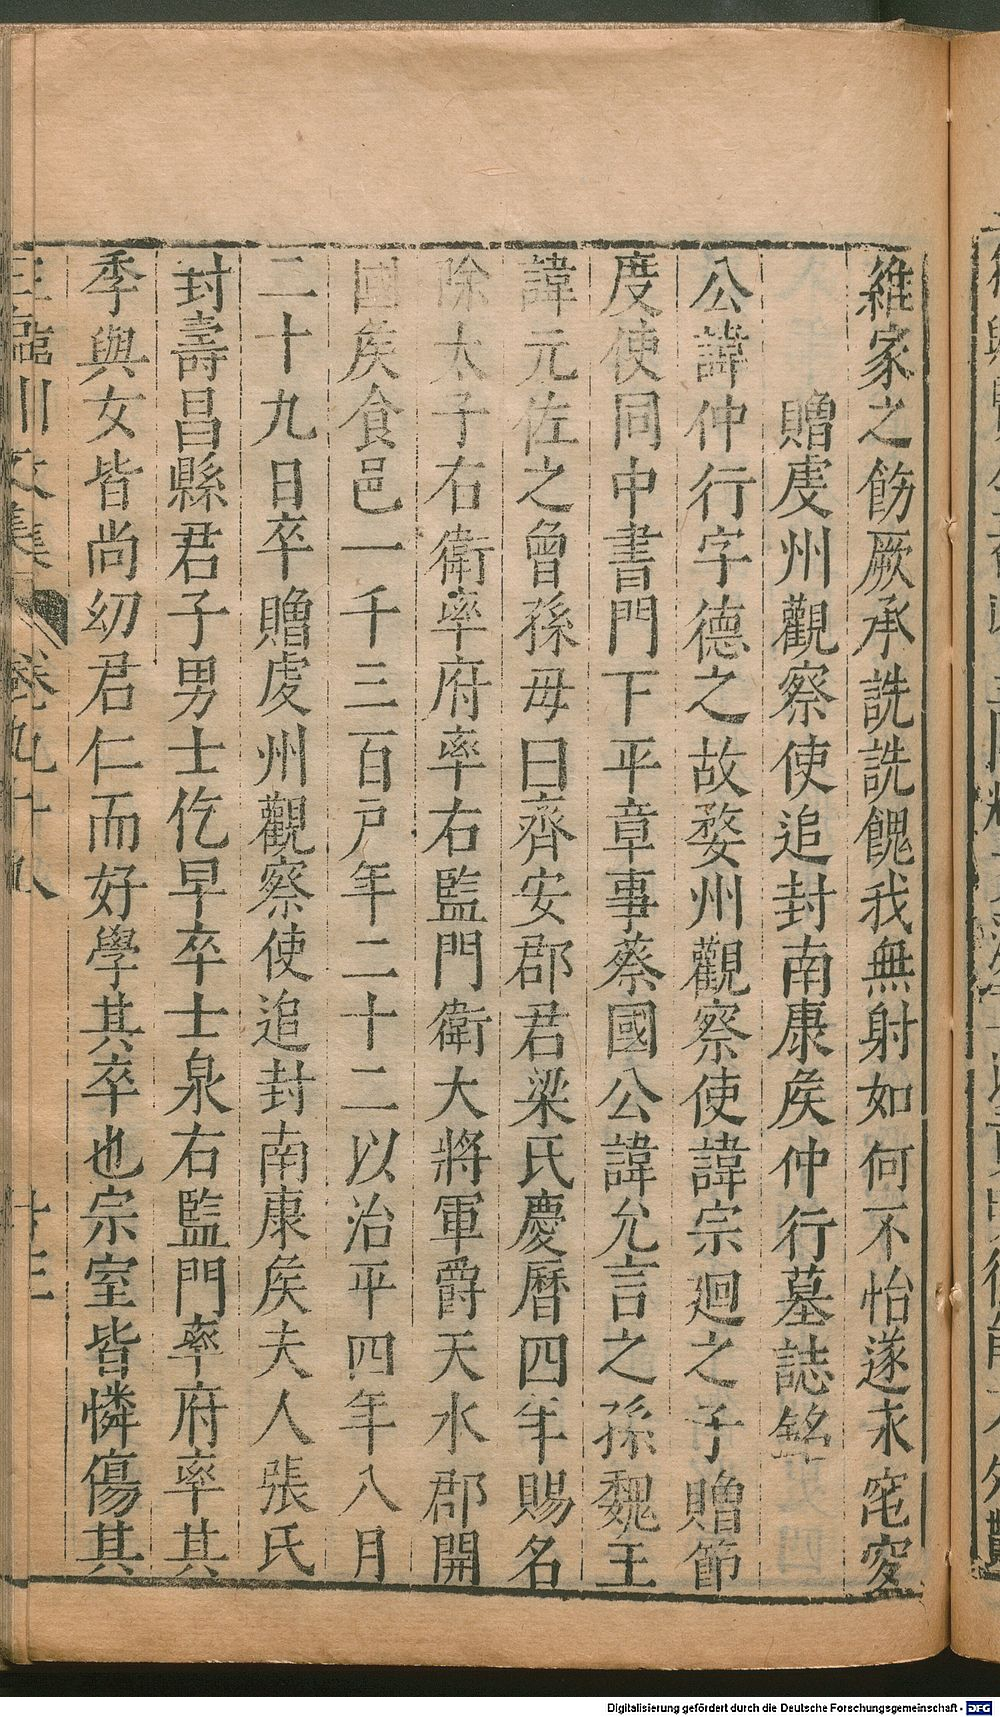 維家之飭厥承詵詵餽我無射如何不怡遂永窀穸
贈虔州觀察使追封南康矦仲行墓誌銘
公諱仲行字德之故婺州觀察使諱宗迴之子贈節
度使同中書門下平章事蔡國公諱允言之孫魏王
諱元佐之曾孫母曰齊安郡君梁氏慶曆四年賜名
除太子右衛率府率右監門衛大將軍爵天水郡開
國矦食邑一千三百戸年二十二以治平四年八月
二十九日卒贈虔州觀察使追封南康矦夫人張氏
封壽昌縣君子男士仡早卒士泉右監門率府率其
季與女皆尚幼君仁而好學其卒也宗室皆憐傷其
王臨川文集 卷九十八 廿三
Digitalisierung gefördert durch die Deutsche Forschungsgemeinschaft - DFG